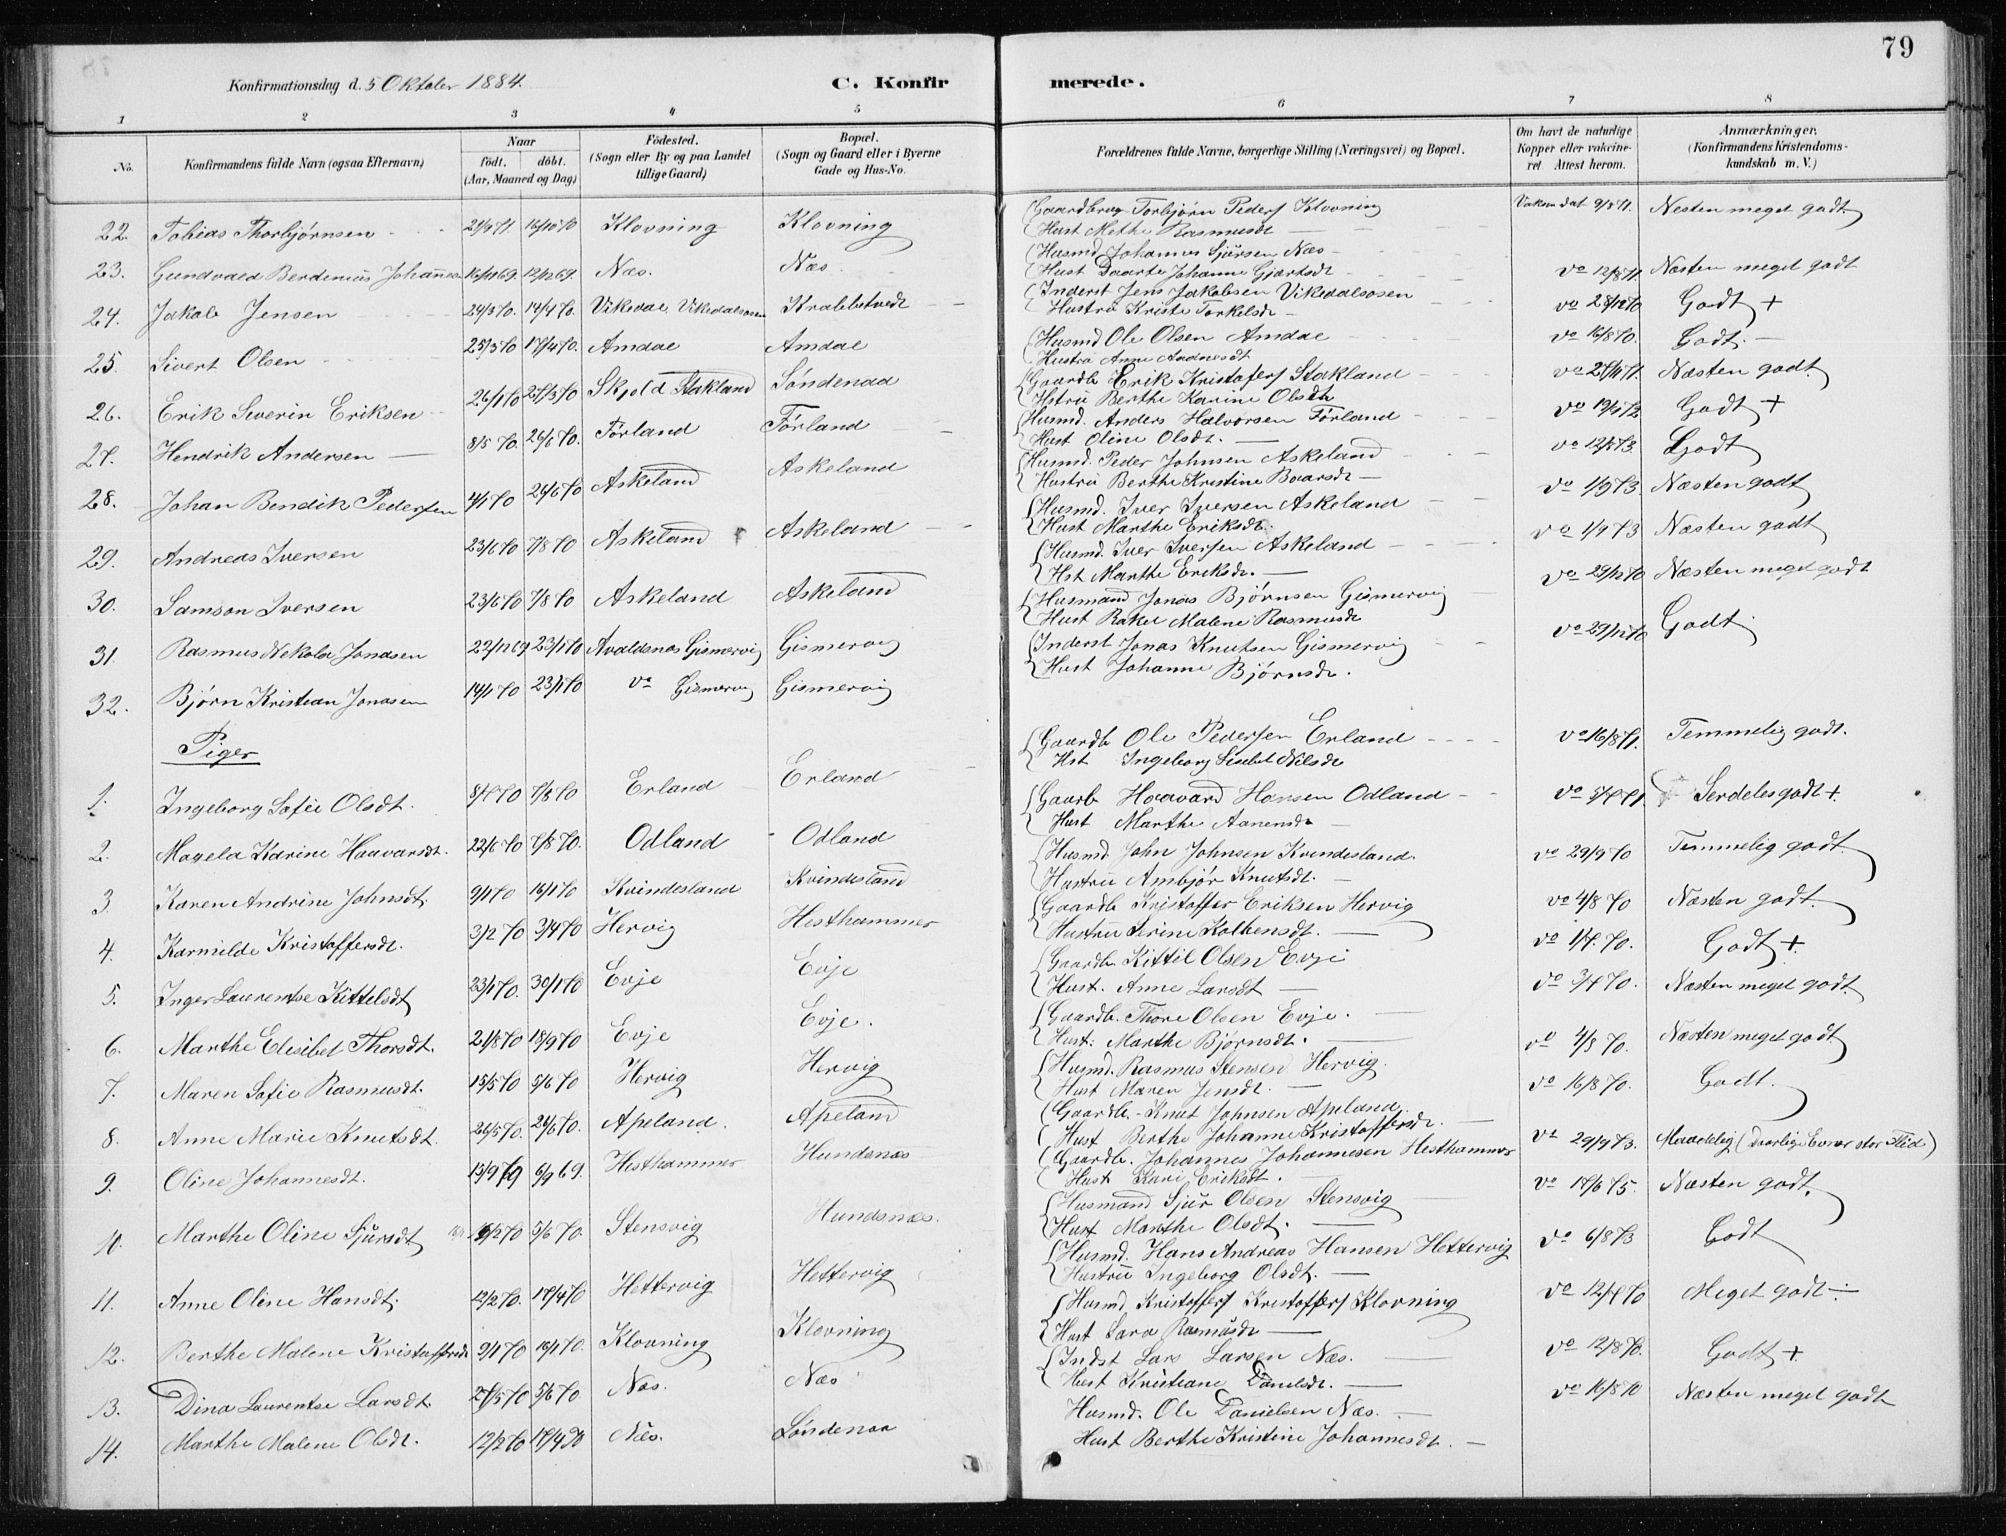 79
Konfirmationsdag d. 5 Oktober 1884.
C. Konfirmerede.
1 2 3 4 5 6 7 8
No.
Konfirmandens fulde Navn (ogsaa Efternavn)
Naar
født. døbt.
(Aar, Maaned og Dag)
Fødested.
(Sogn eller By og paa Landet
tillige Gaard)
Bopæl.
(Sogn og Gaard eller i Byerne
Gade og Hus-No.
Forældrenes fulde Navne, borgerlige Stilling (Næringsvei) og Bopæl.
Om havt de naturlige
Kopper eller vakcine-
ret. Attest herom.
Anmærkninger.
(Konfirmandens Kristendoms-
kundskab m. V.)
22. Tobias Thorbjørnsen Klovning Klovning
Gaardbrug Torbjørn Peders Klovning
Hust Methe Rasmusdt
9/8 71. Nesten meget godt
23. Gundvald Berdenius Johannes 12/12 69. Næs. Næs
Husmd Johannes Sjursen Næs
Hust Daarte Johanne Gjertsdt
vo 12/8 71 Næsten meget godt
24. Jakob Jensen 24/3 70. 14/4 70. Vikedal, Vikedalsosen Krabbetvedt
Inderst Jens Jakobsen Vikedalsosen
Hustru Kriste Torkelsdt
vo 28/12 70 Godt +
25. Sivert Olsen 25/3 70 17/4 70. Amdal Amdal
Husmd Ole Olsen Amdal
Hustru Anne Aadnesdt
vo 16/8 70. Godt. —
26. Erik Severin Eriksen 26/1 70 27/3 70 Skjold Stakland Søndenaa
Gaardb Erik Kristofers Stakland
Hstru Berthe Karine Olsdt
vo 27/11 71. Næsten godt.
27. Hendrik Andersen 8/5 70. 26/6 70. Førland Førland
Husmd. Anders Halvorsen Førland
Hust Oline Olsdt. —
vo 19/1 73 Godt +
28. Johan Bendik Pedersen 4/1 70 26/6 70 Askeland Askeland
Husmd. Peder Johnsen Askeland
Hustru Berthe Kristine Boarsdt
vo 12/1 73. Godt
29. Andreas Iversen 23/6 70 7/8 70 Askeland Askeland
Husmd. Iver Iversen Askeland
Hust Marthe Eriksdt.
vo 1/9 73. Næsten godt
30. Samson Iversen 23/6 70 7/8 70 Askeland Askeland
Husmd. Iver Iversen Askeland
Hst Marthe Eriksdt. —
vo 1/9 73 Næsten godt
31. Rasmus Nekolai Jonasen 22/11 69 23/1 70 Avaldsnas Gismervig Gismervig
Husmand Jonas Bjørnsen Gismervig
Hust Rakel Malene Rasmusdt
vo 29/12 70 Næsten meget godt
32. Bjørn Kristian Jonasen 14/1 70 23/1 70 vo Gismervig Gismervig
Inderst Jonas Knutsen Gismervig
Hust Johanne Bjørnsdt.
vo 29/12 70 Godt.
Piger
1. Ingeborg Sofie Olsdt. 8/7 70 7/8 70 Erland Erland
Gaardb Ole Pedersen Erland
Hst Ingeborg Lisebet Nilsdt
vo 16/8 71. Temmelig godt.
2. Magela Karine Haavarsdt. 22/6 70 7/8 70. Odland Odland
Gaarb Haavard Hansen Odland
Hust Marthe Aanensdt
vo 5/7 71. Serdeles godt +.
3. Karen Andrine Johnsdt. 9/1 70 16/1 70 Kvindesland Kvindesland
Husmd. John Johnsen Kvindesland.
Hustru Ambjør Knutsdt. —
vo 29/9 70 Temmelig godt.
4. Karmilde Kristoffersdt. 3/2 70 3/4 70 Hervig Hesthammer
Gaardb Kristoffer Eriksen Hervig
Hustru Serine Kolbensdt. —
vo 4/8 70 Næsten godt.
5. Inger Laurentse Kittelsdt 23/1 70. 30/1 70 Evje Evje
Gaardb. Kittil Olsen Evje
Hust. Anne Larsdt —
vo 1/7. 70. Godt +
6. Marthe Elisibet Thorsdt. 21/8 70 18/9 70 Evje Evje.
Gaardb. Thore Olsen Evje. —
Hust. Marthe Bjørnsdt. —
vo 3/7 70. Næsten meget godt.
7. Maren Sofie Rasmusdt. 15/5 70 5/6 70 Hervig Hervig
Husmd. Rasmus Stensen Hervig.
Hust Maren Jensdt. —
vo 4/8 70. Næsten meget godt
8. Anne Marie Knutsdt. 26/5 70. 26/6 70. Apeland. Apeland
Gaardb. Knut Johnsen Apeland.
Hust Berthe Johanne Kristoffersdt. —
vo 16/8 70. Godt.
9. Oline Johannesdt. Hesthammer Hundsnæs
Gaardb. Johannes Johannesen Hesthammer
Hust Kari Eriksdt. —
vo 29/9 73. Maadelig (Daarlige Evner stor Flid)
10. Marthe Oline Sjursdt 5/6 70. Stensvig Hundsnæs.
Husmand Sjur Olsen Stensvig
Hust Marthe Olsdt. —
vo 17/6 75. Næsten godt.
11. Anne Oline Hansdt. 12/2 70. 17/4 70 Hettervig Hettervig
Husmd. Hans Andreas Hansen Hettervig
Hustru Ingeborg Olsdt. —
vo 6/8 73 Godt
12. Berthe Malene Kristoffersdt 9/1 70 16/1 70. Klovning Klovning
Husmd Kristoffers Kristoffers Klovning
Hust Sara Rasmusdt —
vo 12/7 70 Meget godt ÷
13. Dina Laurentse Larsdt. 27/5 70 5/6 70 Næs. Næs
Indst Lars Larsen Næs. —
Hust Kristiane Danielsdt. —
vo 12/8 70. Godt +
14. Marthe Malene Olsdt. 12/2 70 17/4 70 Næs. Søndenaa
Husmd. Ole Danielsen Næs. —
Hust Berthe Kristine Johannesdt. —
vo 16/8 70 Næsten meget godt